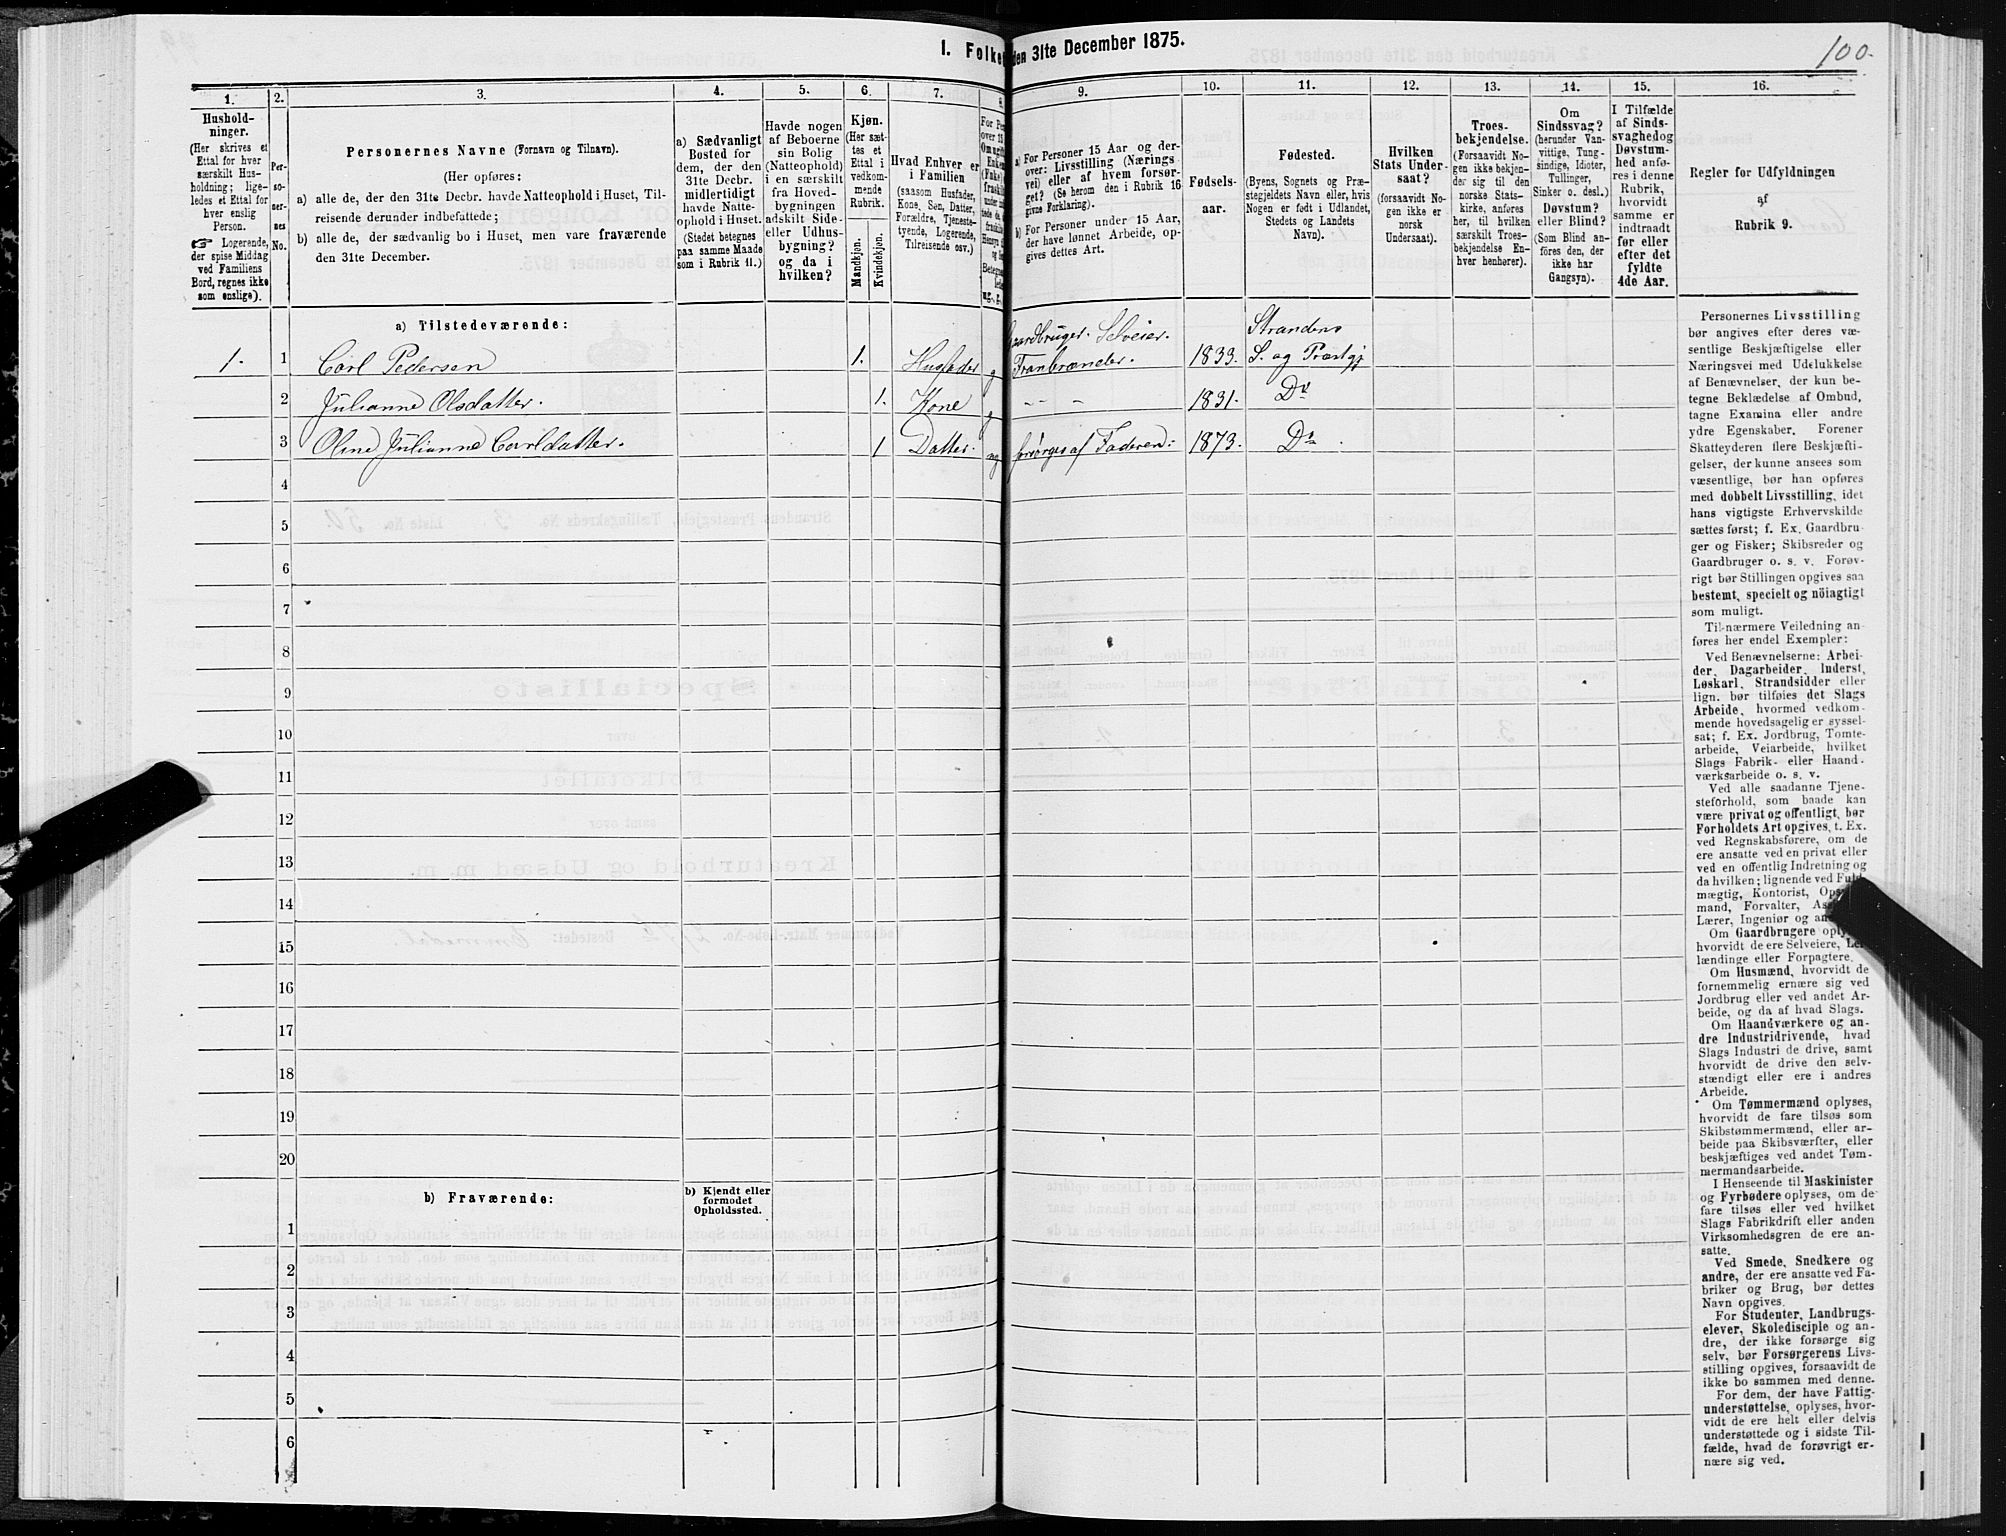 I. Folket
den 31te December 1875.
100.
1.
2.
3.
4.
5.
6.
7.
8.
9.
10.
11.
12.
13.
14.
15.
16.
Hushold-
ninger.
(Her skrives et
Ettal for hver
særskilt Hus-
holdning; lige-
ledes et Ettal for
hver enslig
Person.
☞ Logerende,
der spise Middag
ved Familiens
Bord, regnes ikke
som enslige).
Per-
so-
ner-
nes
No.
Personernes Navne (Fornavn og Tilnavn).
(Her opføres:
a) alle de, der den 31te Decbr. havde Natteophold i Huset, Til-
reisende derunder indbefattede;
b) alle de, der sædvanlig bo i Huset, men vare fraværende
den 31te December.
a) Sædvanligt
Bosted for
dem, der den
31te Decbr.
midlertidigt
havde Natte-
ophold i Huset.
(Stedet betegnes
paa samme Maade
som i Rubrik 11.)
Havde nogen
af Beboerne
sin Bolig
(Natteophold)
i en særskilt
fra Hoved-
bygningen
adskilt Side-
eller Udhus-
bygning?
og da i
hvilken?
Kjøn.
(Her sæt-
tes et
Ettal i
vedkom-
mende
Rubrik.
Mandkjøn.
Kvindekjøn.
Hvad Enhver er
i Familien
(saasom Husfader,
Kone, Søn, Datter,
Forældre, Tjeneste-
tyende, Logerende,
Tilreisende osv.)
a) For Personer 15 Aar og der-
over: Livsstilling (Nærings
vei) eller af hvem forsør-
get? (Se herom den i Rubrik 16
givne Forklaring).
b) For Personer under 15 Aar,
der have lønnet Arbeide, op-
gives dettes Art.
Fødsels-
aar.
Fødested.
(Byens, Sognets og Præ-
stegjeldets Navn eller, hvis
Nogen er født i Udlandet,
Stedets og Landets
Navn).
Hvilken
Stats Under-
saat?
(forsaavidt No-
gen ikke er
norsk
Undersaat).
Troes-
bekjendelse.
(Forsaavidt No-
gen ikke bekjen-
der sig til den
norske Stats-
kirke, anføres
her, til hvilken
særskilt Troes-
bekjendelse En-
hver henhører).
Om
Sindssvag?
(herunder Van-
vittige, Tung-
sindige, Idioter,
Tullinger,
Sinker o. desl.)
Døvstum?
eller Blind?
(Som Blind an-
føres den, der
ikke har
Gangsyn).
I Tilfælde
af Sinds-
svaghed og
Døvstum-
hed anfø-
res i denne
Rubrik,
hvorvidt
samme er
indtraadt
før eller
efter det
fyldte
4de Aar.
Regler for Udfyldningen
af
Rubrik 9.
a) Tilstedeværende:
Gaardbruger. Selveier. Strandens
1. 1 Carl Pedersen 1. Husfader g Tranbrænder. 1833. S. og Præstgj
2 Julianne Olsdatter. 1. Kone g -- - 1831. Do
3 Oline Julianne Carlsdatter. 1 Datter. ug forsørges af Faderen: 1873. Do
4
5
6
7
8
9
10
11
12
13
14
15
16
17
18
19
20
b) Fraværende:
b) Kjendt eller
formodet
Opholdssted.
1
2
3
4
5
6
Personernes Livsstilling
bør angives efter deres væ-
sentlige Beskjæftigelse eller
Næringsvei med Udelukkelse
af Benævnelser, der kun be-
tegne Beklædelse af Ombud,
tagne Examina eller andre
ydre Egenskaber. Forener
Skatteyderen flere Beskjæfti-
gelser, der kunne ansees som
væsentlige, bør han opføres
med dobbelt Livsstilling, idet
hans vigtigste Erhvervskilde
sættes først; f. Ex. Gaardbru-
ger og Fisker; Skibsreder og
Gaardbruger o. s. v. Forøv-
rigt bør Stillingen opgives saa
bestemt, specielt og nöiagtigt
som muligt.
Til nærmere Veiledning an-
føres her endel Exempler:
Ved Benævnelserne: Arbei-
der, Dagarbeider, Inderst,
Løskarl, Strandsidder eller
lign. bør tilføies det Slags
Arbeide, hvormed vedkom-
mende hovedsagelig er syssel-
sat; f. Ex. Jordbrug, Tomte-
arbeide, Veiarbeide, hvilket
Slags Fabrik- eller Haand-
værksarbeide o. s. v.
Ved alle saadanne Tjene-
steforhold, som baade kan
være privat og offentligt, bør
Forholdets Art opgives, t. Ex.
ved Regnskabsførere, om de
ere ansatte ved en privat eller
ved en offentlig Indretning og
da hvilken; lignende ved
mægtig, Kontorist,
mand, Forvalter,
Lærer, Ingeniør og
Om Gaardbrugere
hvorvidt de ere Selveiere,
lændinge eller Forpagtere.
Om Husmænd, hvorvidt de
fornemmelig ernære sig ved
Jordbrug eller ved andet Ar-
beide, og da af hvad Slags.
Om Haandværkere og an-
dre Industridrivende, hvad
Slags Industri de drive, samt
hvorvidt de drive den selv-
stændigt eller ere i andres
Arbeide.
Om Tømmermænd oplyses,
hvorvidt de fare tilsøs som
Skibstømmermænd, eller ar-
beide paa Skibsværfter, eller
beskjæftiges ved andet Tøm-
mermandsarbeide.
I Henseende til Maskinister
og Fyrbødere oplyses, om de
fare tilsøs eller ved hvilket
Slags Fabrikdrift eller anden
Virksomhedsgren de ere an-
satte.
Ved Smede, Snedkere og
andre, der ere ansatte ved Fa-
briker og Brug, bør dettes
Navn opgives.
For Studenter, Landbrugs-
elever, Skoledisciple og an-
dre, der ikke forsørge sig
selv, bør Forsørgerens Livs-
stilling opgives, forsaavidt de
ikke bo sammen med denne.
For dem, der have Fattig-
understøttelse, oplyses, hvor-
vidt de ere helt eller delvis
understøttede og i sidste Til-
fælde, hvad de forøvrigt er-
nære sig ved.